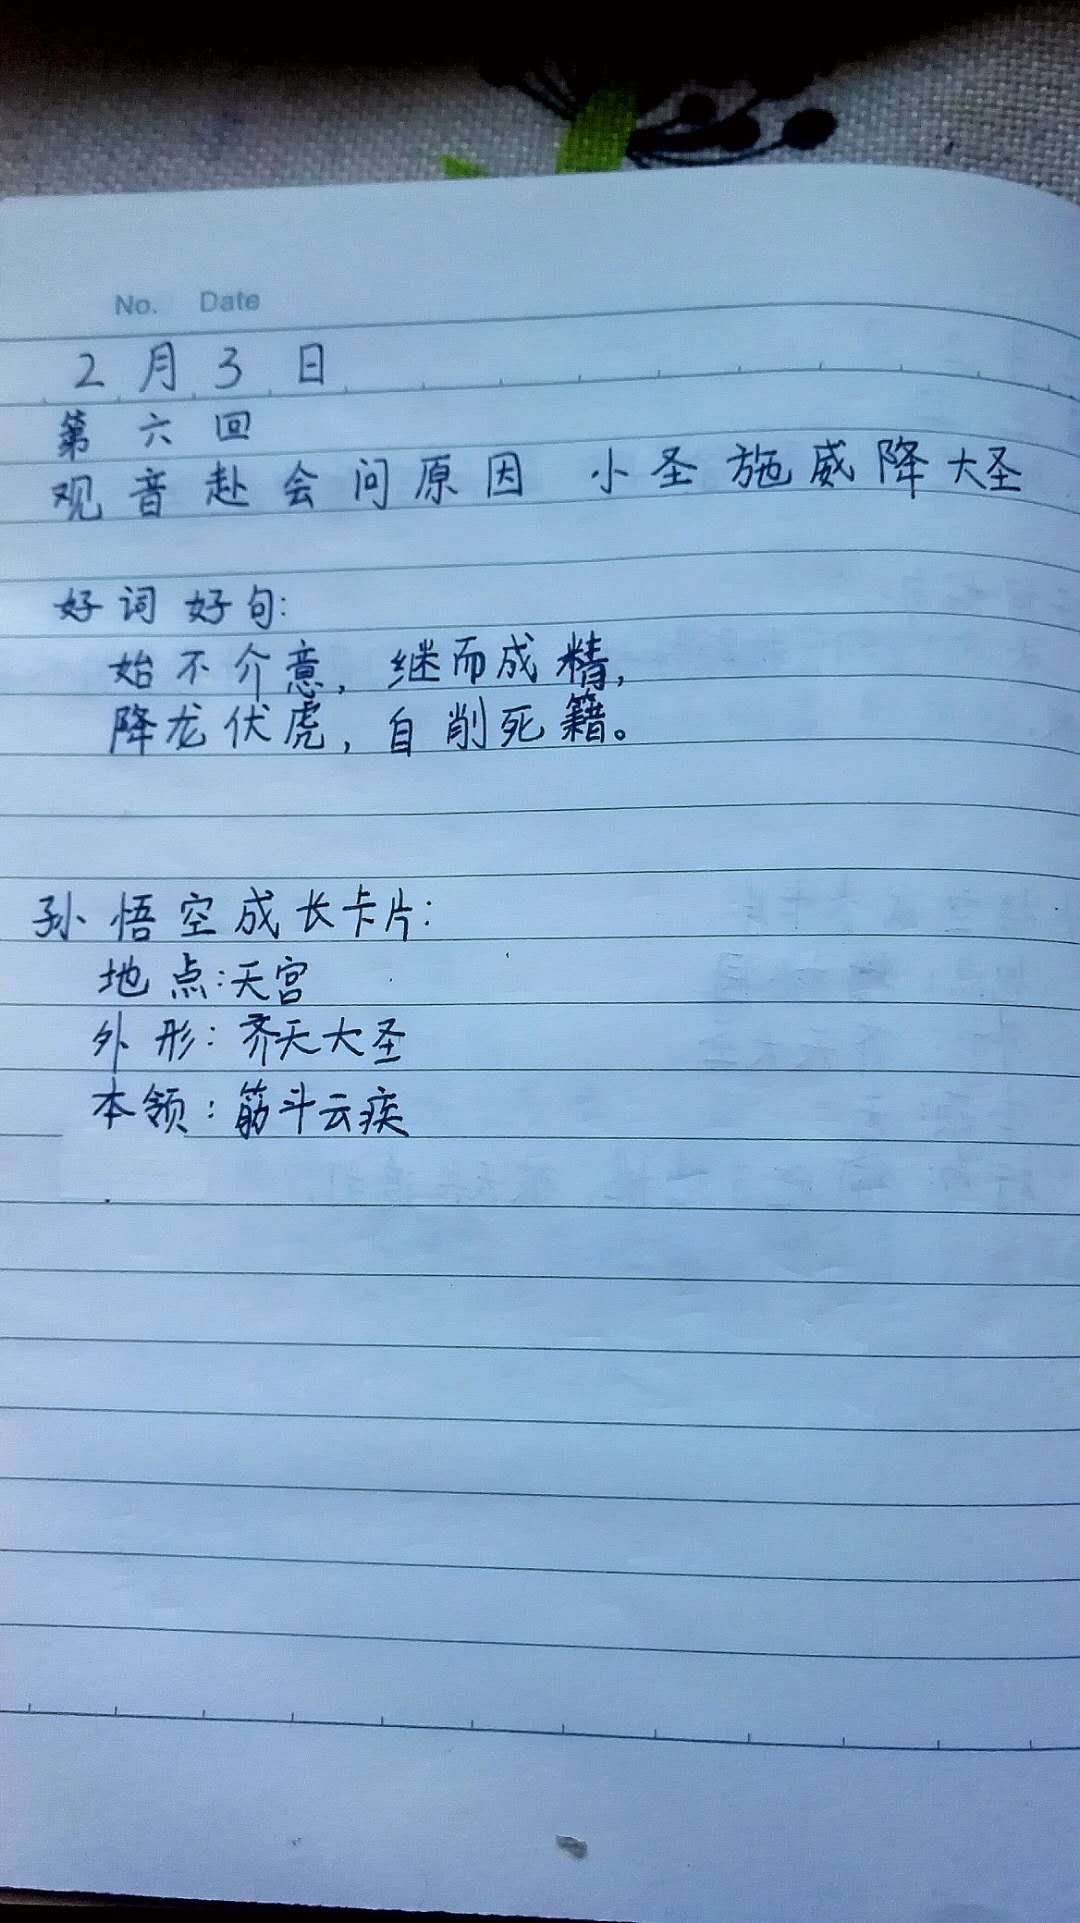 No. Date
2月3日
第六回
观音赴会问原因 小圣施威降大圣
好词好句:
始不介意,继而成精,
降龙伏虎,自削死籍。
孙悟空成长卡片:
地点:天宫
外形:齐天大圣
本领:筋斗云疾